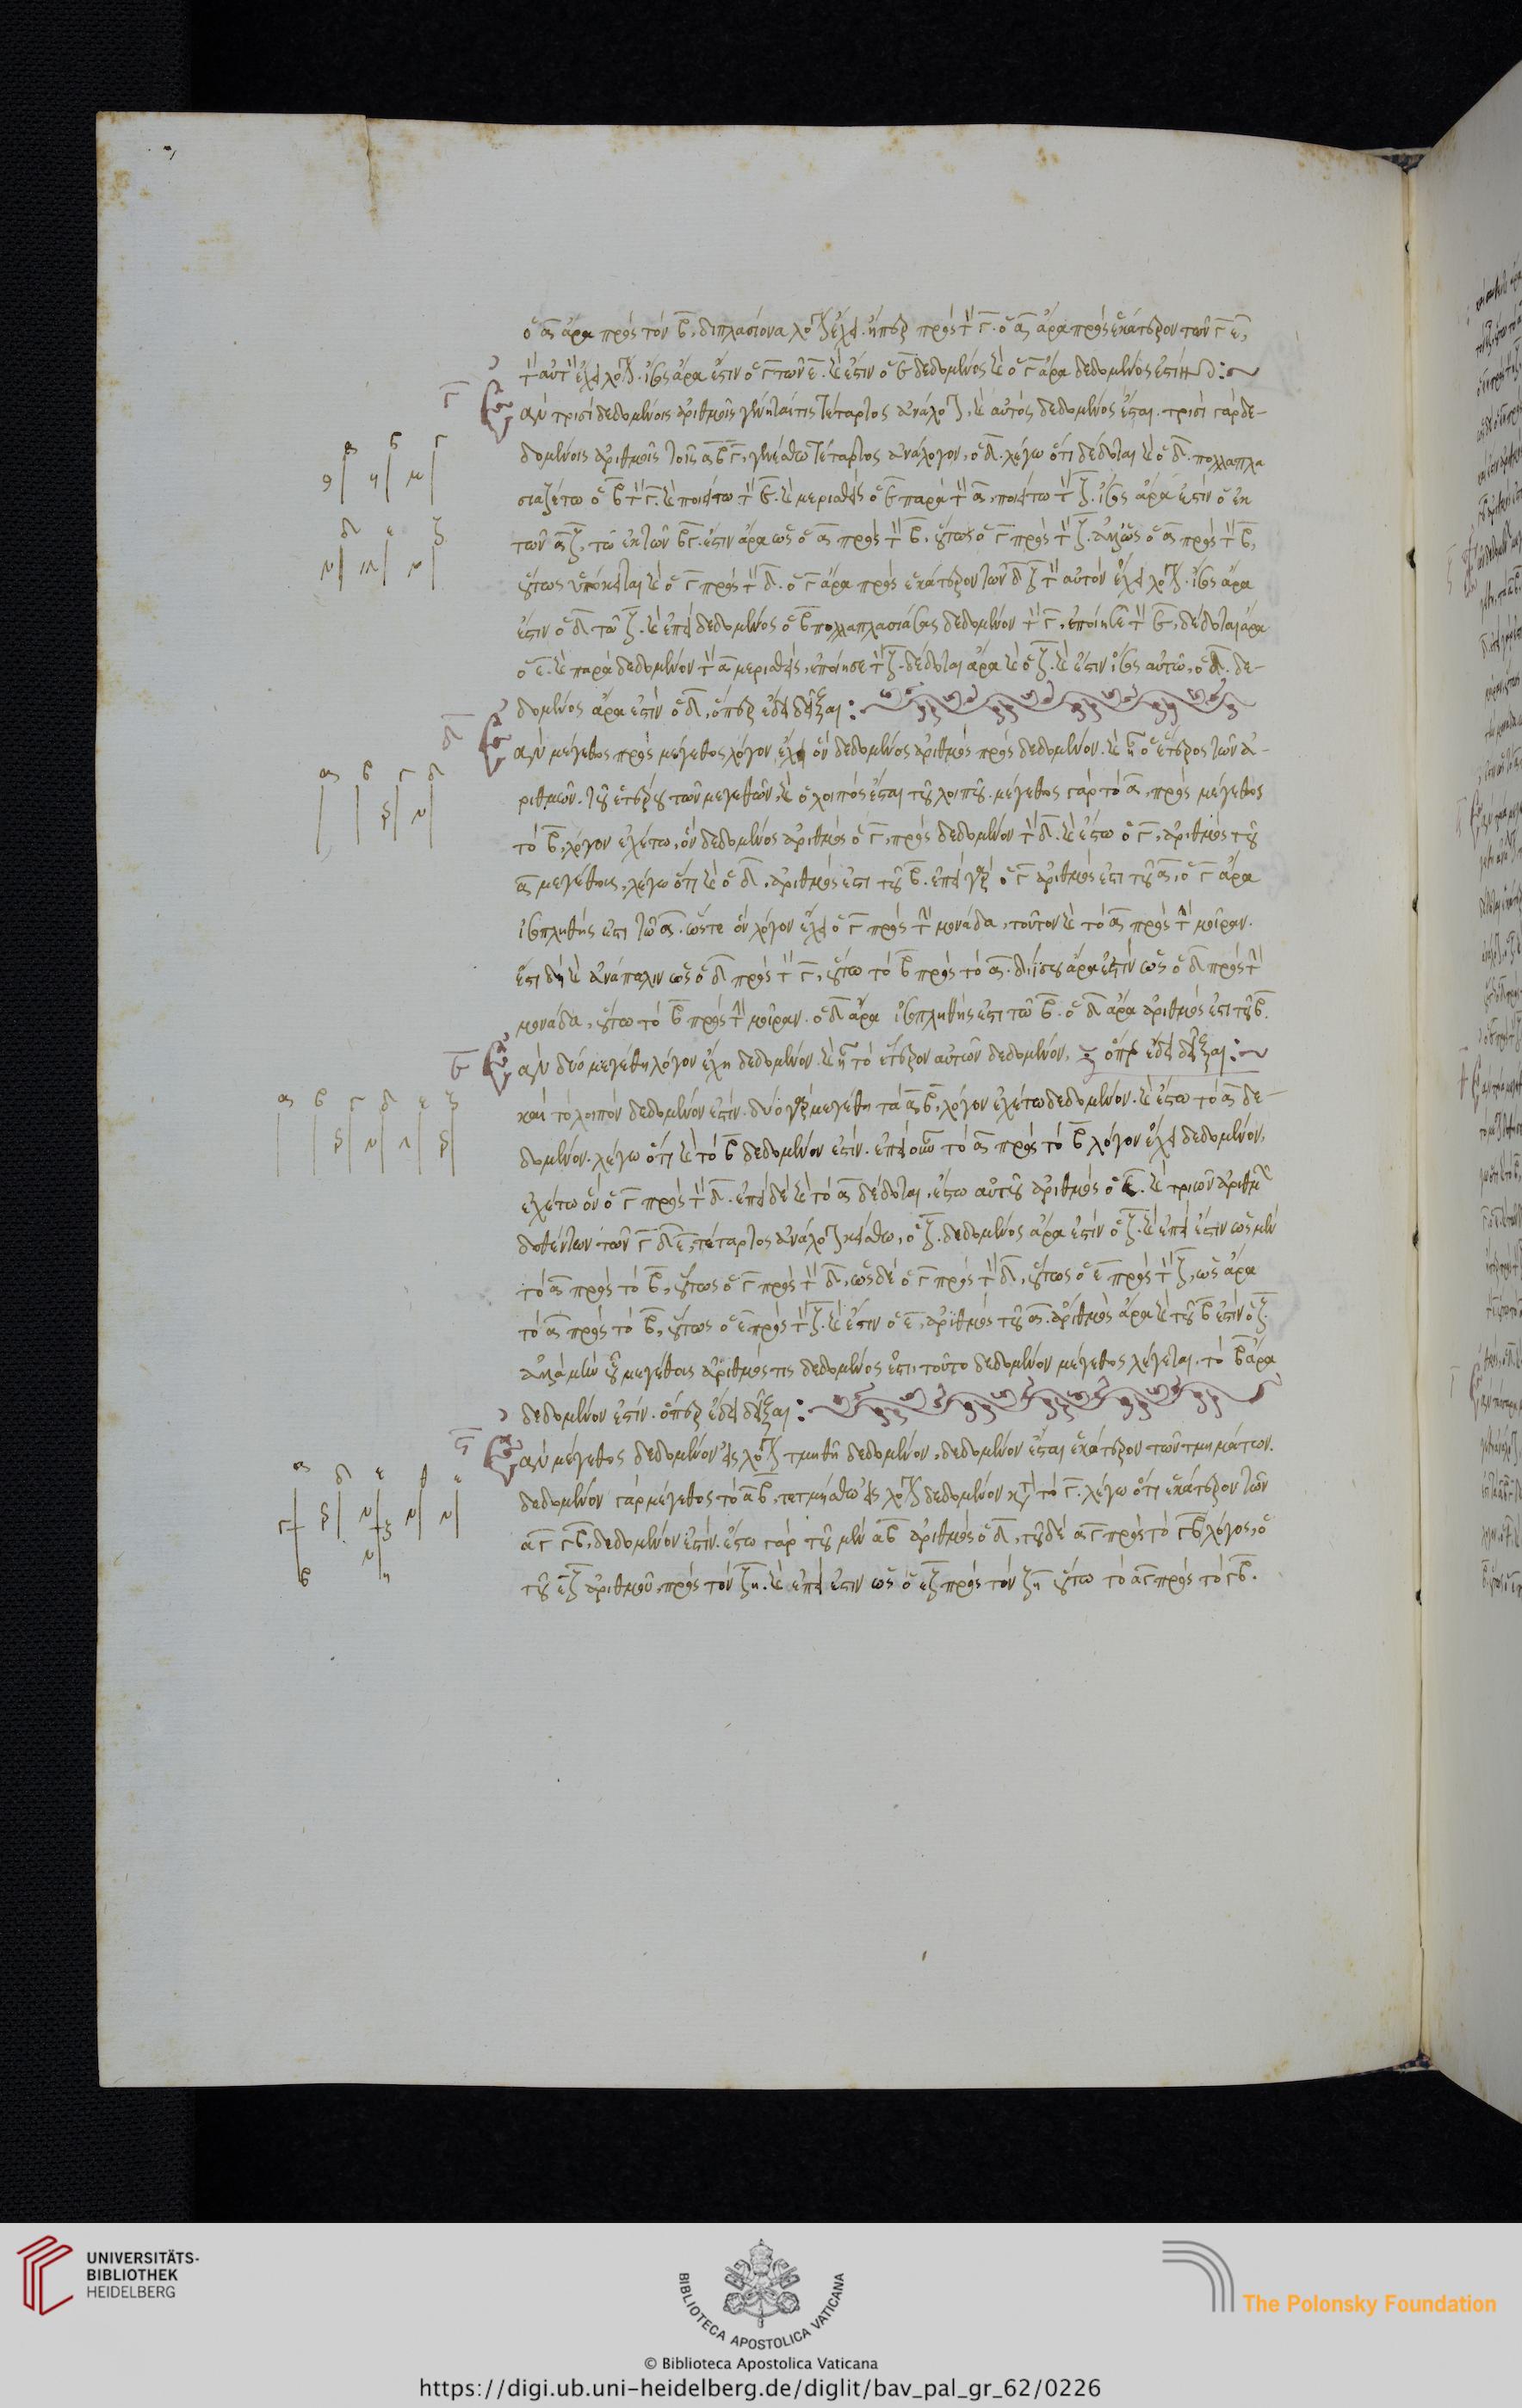 ὁ α ἄρα πρὸς τὸν β, διπλασίονα λόγον ἔχει ἤπερ πρὸς τὸν γ. ὁ α ἄρα πρὸς ἑκάτερον τῶν γ ε,
τὸν αὐτὸν ἔχει λόγον. ἴσος ἄρα ἐστὶν ὁ γ τῶ ε. καὶ ἔστιν ὁ ε δεδομένος καὶ ὁ γ ἄρα δεδομένος ἐστίν
γ
ἐὰν τρισὶ δεδομένοις ἀριθμοῖς γένηταί τις τέταρτος ἀνάλογον, καὶ αὐτὸς δεδομένος ἔσται. τρισὶ γὰρ δε-
δομένοις ἀριθμοῖς τοῖς α β γ, γινέσθω τέταρτος ἀνάλογον, ὁ δ. λέγω ὅτι δέδοται καὶ ὁ δ. πολλαπλα
σιαζέτω ὁ β τὸν γ. καὶ ποιείτω τὸν ε. καὶ μερισθεὶς ὁ ε παρὰ τὸν α, ποιείτω τὸν ζ. ἴσος ἄρα ἐστὶν ὁ ἐκ
τῶν α ζ, τῶ ἐκ τῶν β γ. ἔστιν ἄρα ὡς ὁ α πρὸς τὸν β, οὕτως ὁ γ πρὸς τὸν ζ. ἀλλ' ὡς ὁ α πρὸς τὸν β,
οὕτως ὑπόκειται καὶ ὁ γ πρὸς τὸν δ. ὁ γ ἄρα πρὸς ἑκάτερον τῶν δ ζ τὸν αὐτὸν ἔχει λόγον. ἴσος ἄρα
ἐστὶν ὁ δ τῶ ζ. καὶ ἐπεὶ δεδομένος ὁ β πολλαπλασιάσας δεδομένον τὸν γ, ἐποίησε τὸν ε, δέδοται ἄρα
ὁ ε. καὶ παρὰ δεδομένον τὸν α μερισθείς, ἐποίησε τὸν ζ. δέδοται ἄρα καὶ ὁ ζ. καὶ ἔστιν ἴσος αὐτῶ, ὁ δ. δε-
δομένος ἄρα ἐστὶν ὁ δ, ὅπερ ἔδει δεῖξαι:
δ
ἐὰν μέγεθος πρὸς μέγεθος λόγον ἔχει ὃν δεδομένος ἀριθμὸς πρὸς δεδομένον. καὶ ἦ ὁ ἕτερος τῶν ἀ-
ριθμῶν. τοῦ ἑτέρου τῶν μεγεθῶν, καὶ ὁ λοιπὸς ἔσται τοῦ λοιποῦ. μέγεθος γὰρ τὸ α, πρὸς μέγεθος
τὸ β, λόγον ἐχέτω, ὃν δεδομένος ἀριθμὸς ὁ γ, πρὸς δεδομένον τὸν δ. καὶ ἔστω ὁ γ, ἀριθμὸς τοῦ
α μεγέθους, λέγω ὅτι καὶ ὁ δ, ἀριθμός ἐστι τοῦ β. ἐπεὶ γὰρ ὁ γ ἀριθμός ἐστι τοῦ α, ὁ γ ἄρα
ἰσπληθής ἐστι τῶ α. ὥστε ὃν λόγον ἔχει ὁ γ πρὸς τὴν μονάδα, τοῦτον καὶ τὸ α πρὸς τὴν μοῖραν.
ἔστι δὴ καὶ ἀνάπαλιν ὡς ὁ δ πρὸς τὸν γ, οὕτω τὸ β πρὸς τὸ α. δι' ἴσου ἄρα ἐστὶν ὡς ὁ δ πρὸς τὴν
μονάδα, οὕτω τὸ β πρὸς τὴν μοῖραν. ὁ δ ἄρα ἰσπληθής ἐστι τῶ β. ὁ δ ἄρα ἀριθμός ἐστι τοῦ β.
ε
ἐὰν δύο μεγέθη λόγον ἔχη δεδομένον. καὶ ἦ τὸ ἕτερον αὐτῶν δεδομένον, ὅπερ ἔδει δεῖξαι:
καὶ τὸ λοιπὸν δεδομένον ἐστίν. δύο γὰρ μεγέθη τὰ α β, λόγον ἐχέτω δεδομένον. καὶ ἔστω τὸ α δε-
δομένον. λέγω ὅτι καὶ τὸ β δεδομένον ἐστίν. ἐπεὶ οὖν τὸ α πρὸς τὸ β λόγον ἔχει δεδομένον,
ἐχέτω ὃν ὁ γ πρὸς τὸν δ. ἐπεὶ δὲ καὶ τὸ α δέδοται, ἔστω αὐτοῦ ἀριθμὸς ὁ ε. καὶ τριῶν ἀριθμῶν
δοθέντων τῶν γ δ ε, τέταρτος ἀνάλογον κείσθω, ὁ ζ. δεδομένος ἄρα ἐστὶν ὁ ζ. καὶ ἐπεί ἐστιν ὡς μὲν
τὸ α πρὸς τὸ β, οὕτως ὁ γ πρὸς τὸν δ, ὡς δὲ ὁ γ πρὸς τὸν δ, οὕτως ὁ ε πρὸς τὸν ζ, ὡς ἄρα
τὸ α πρὸς τὸ β, οὕτως ὁ ε πρὸς τὸν ζ. καὶ ἔστιν ὁ ε, ἀριθμὸς τοῦ α. ἀριθμὸς ἄρα καὶ τοῦ β ἐστὶν ὁ ζ.
ἀλλὰ μὴν οὗ μεγέθους ἀριθμός τις δεδομένος ἐστι, τοῦτο δεδομένον μέγεθος λέγεται. τὸ β ἄρα
δεδομένον ἐστίν. ὅπερ ἔδει δεῖξαι:
ϛ
ἐὰν μέγεθος δεδομένον εἰς λόγον τμηθῆ δεδομένον, δεδομένον ἔσται ἑκάτερον τῶν τμημάτων.
δεδομένον γὰρ μέγεθος τὸ α β, τετμήσθω εἰς λόγον δεδομένον κατὰ τὸ γ. λέγω ὅτι ἑκάτερον τῶν
α γ γ β, δεδομένον ἐστίν. ἔστω γὰρ τοῦ μὲν α β ἀριθμὸς ὁ δ, τοῦ δὲ α γ πρὸς τὸ γ β λόγος, ὁ
τοῦ ε ζ ἀριθμοῦ, πρὸς τὸν ζ η. καὶ ἐπεί ἐστιν ὡς ὁ ε ζ πρὸς τὸν ζ η οὕτω τὸ α γ πρὸς τὸ γ β.
UNIVERSITÄTS-
BIBLIOTHEK
HEIDELBERG
BIBLIOTECA APOSTOLICA VATICANA
The Polonsky Foundation
© Biblioteca Apostolica Vaticana
https://digi.ub.uni-heidelberg.de/diglit/bav_pal_gr_62/0226